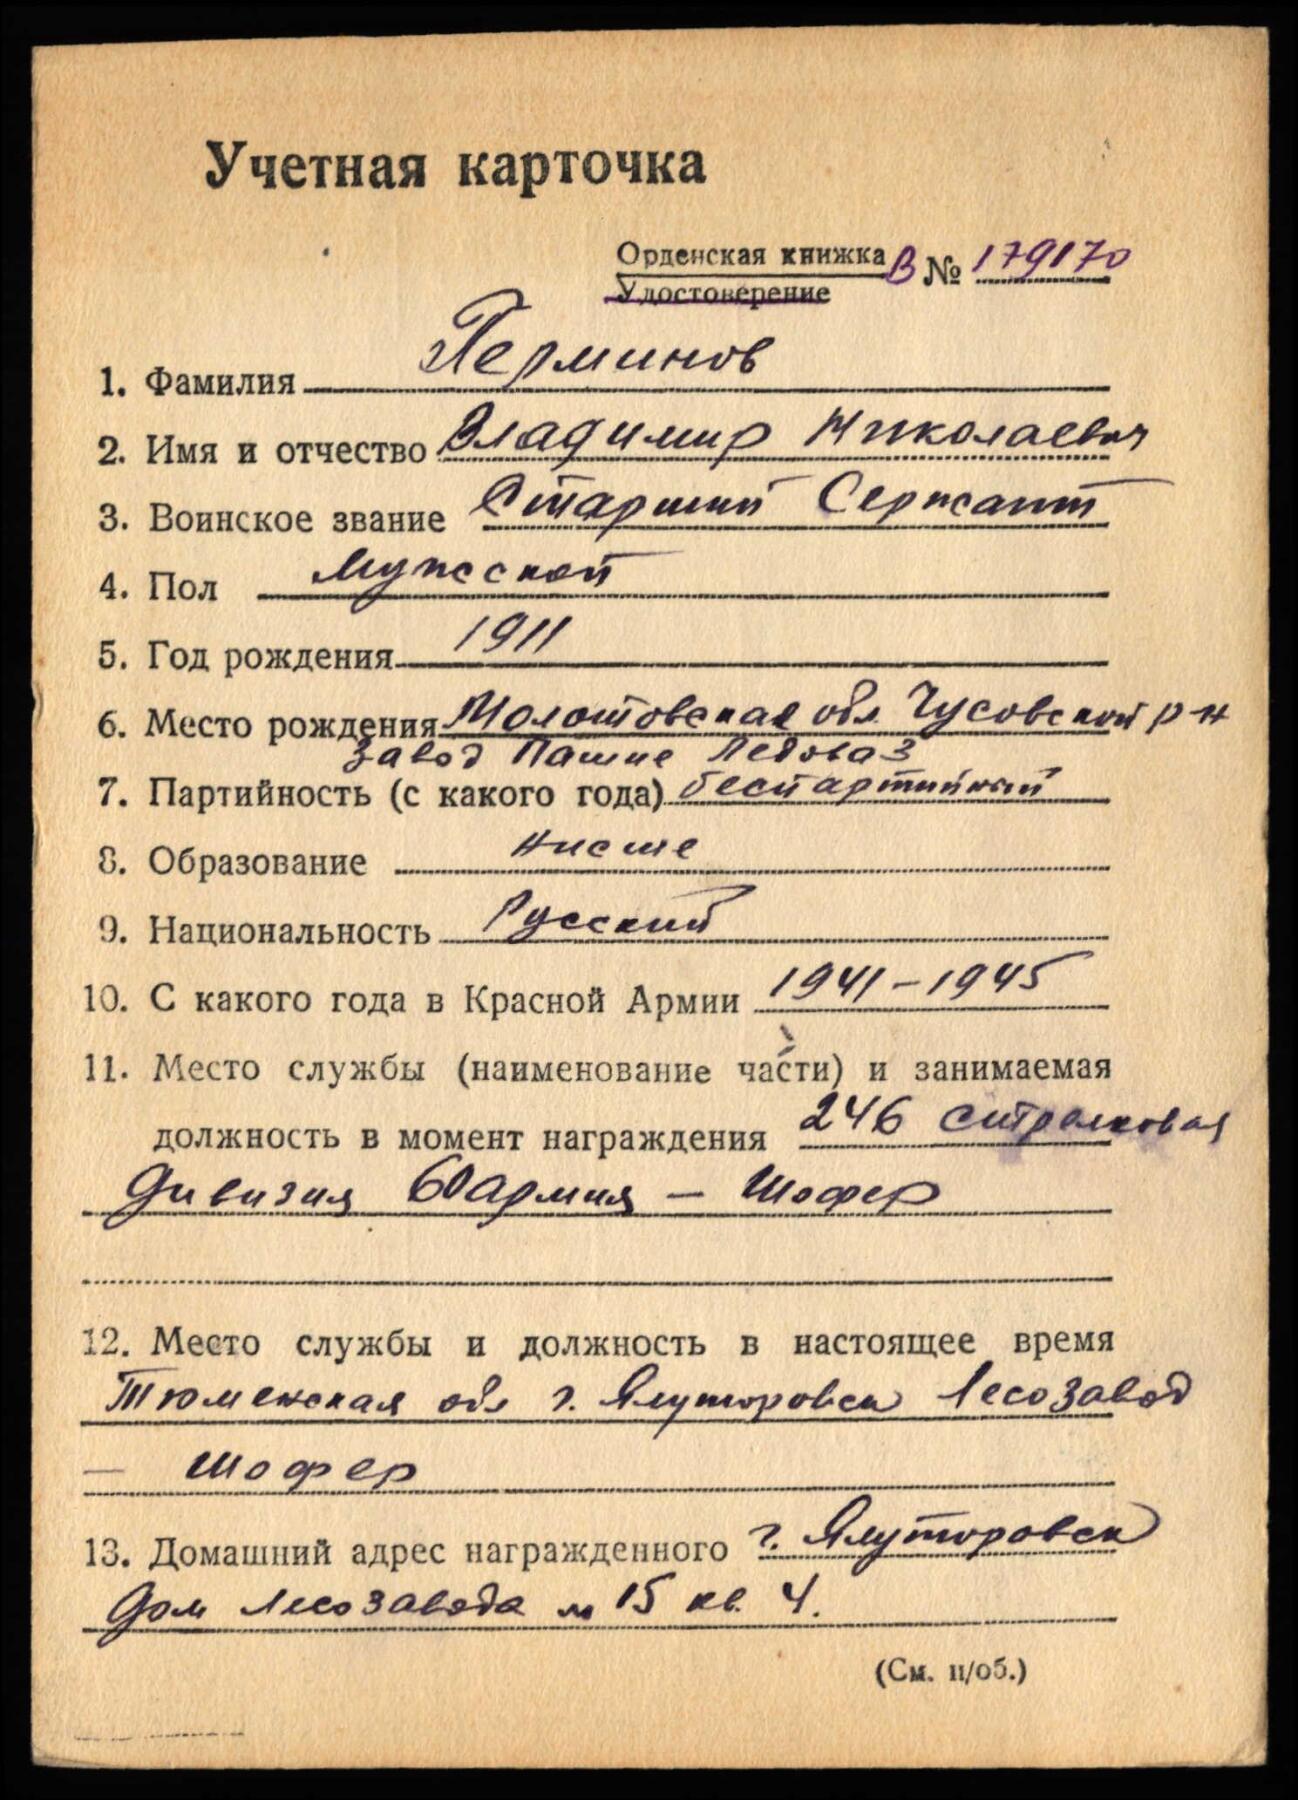 Учетная карточка
Орденская книжка В № 179170
Удостоверение
Перминов
1. Фамилия
2. Имя и отчество Владимир Николаевич
3. Воинское звание Старший Сержант
4. Пол Мужской
5. Год рождения 1911
6. Место рождения Молотовская обл. Чусовской р-н
завод Пашие
7. Партийность (с какого года) беспартийный
8. Образование Нисше
9. Национальность Русский
10. С какого года в Красной Армии 1941-1945
11. Место службы (наименование части) и занимаемая
должность в момент награждения 246 стрелковая
дивизия 60 армия — Шофер
12. Место службы и должность в настоящее время
Тюменская обл г. Ялуторовск Лесозавод
— Шофер
13. Домашний адрес награжденного г. Ялуторовск
Дом Лесозавода 15 кв. 4.
(См. н/об.)